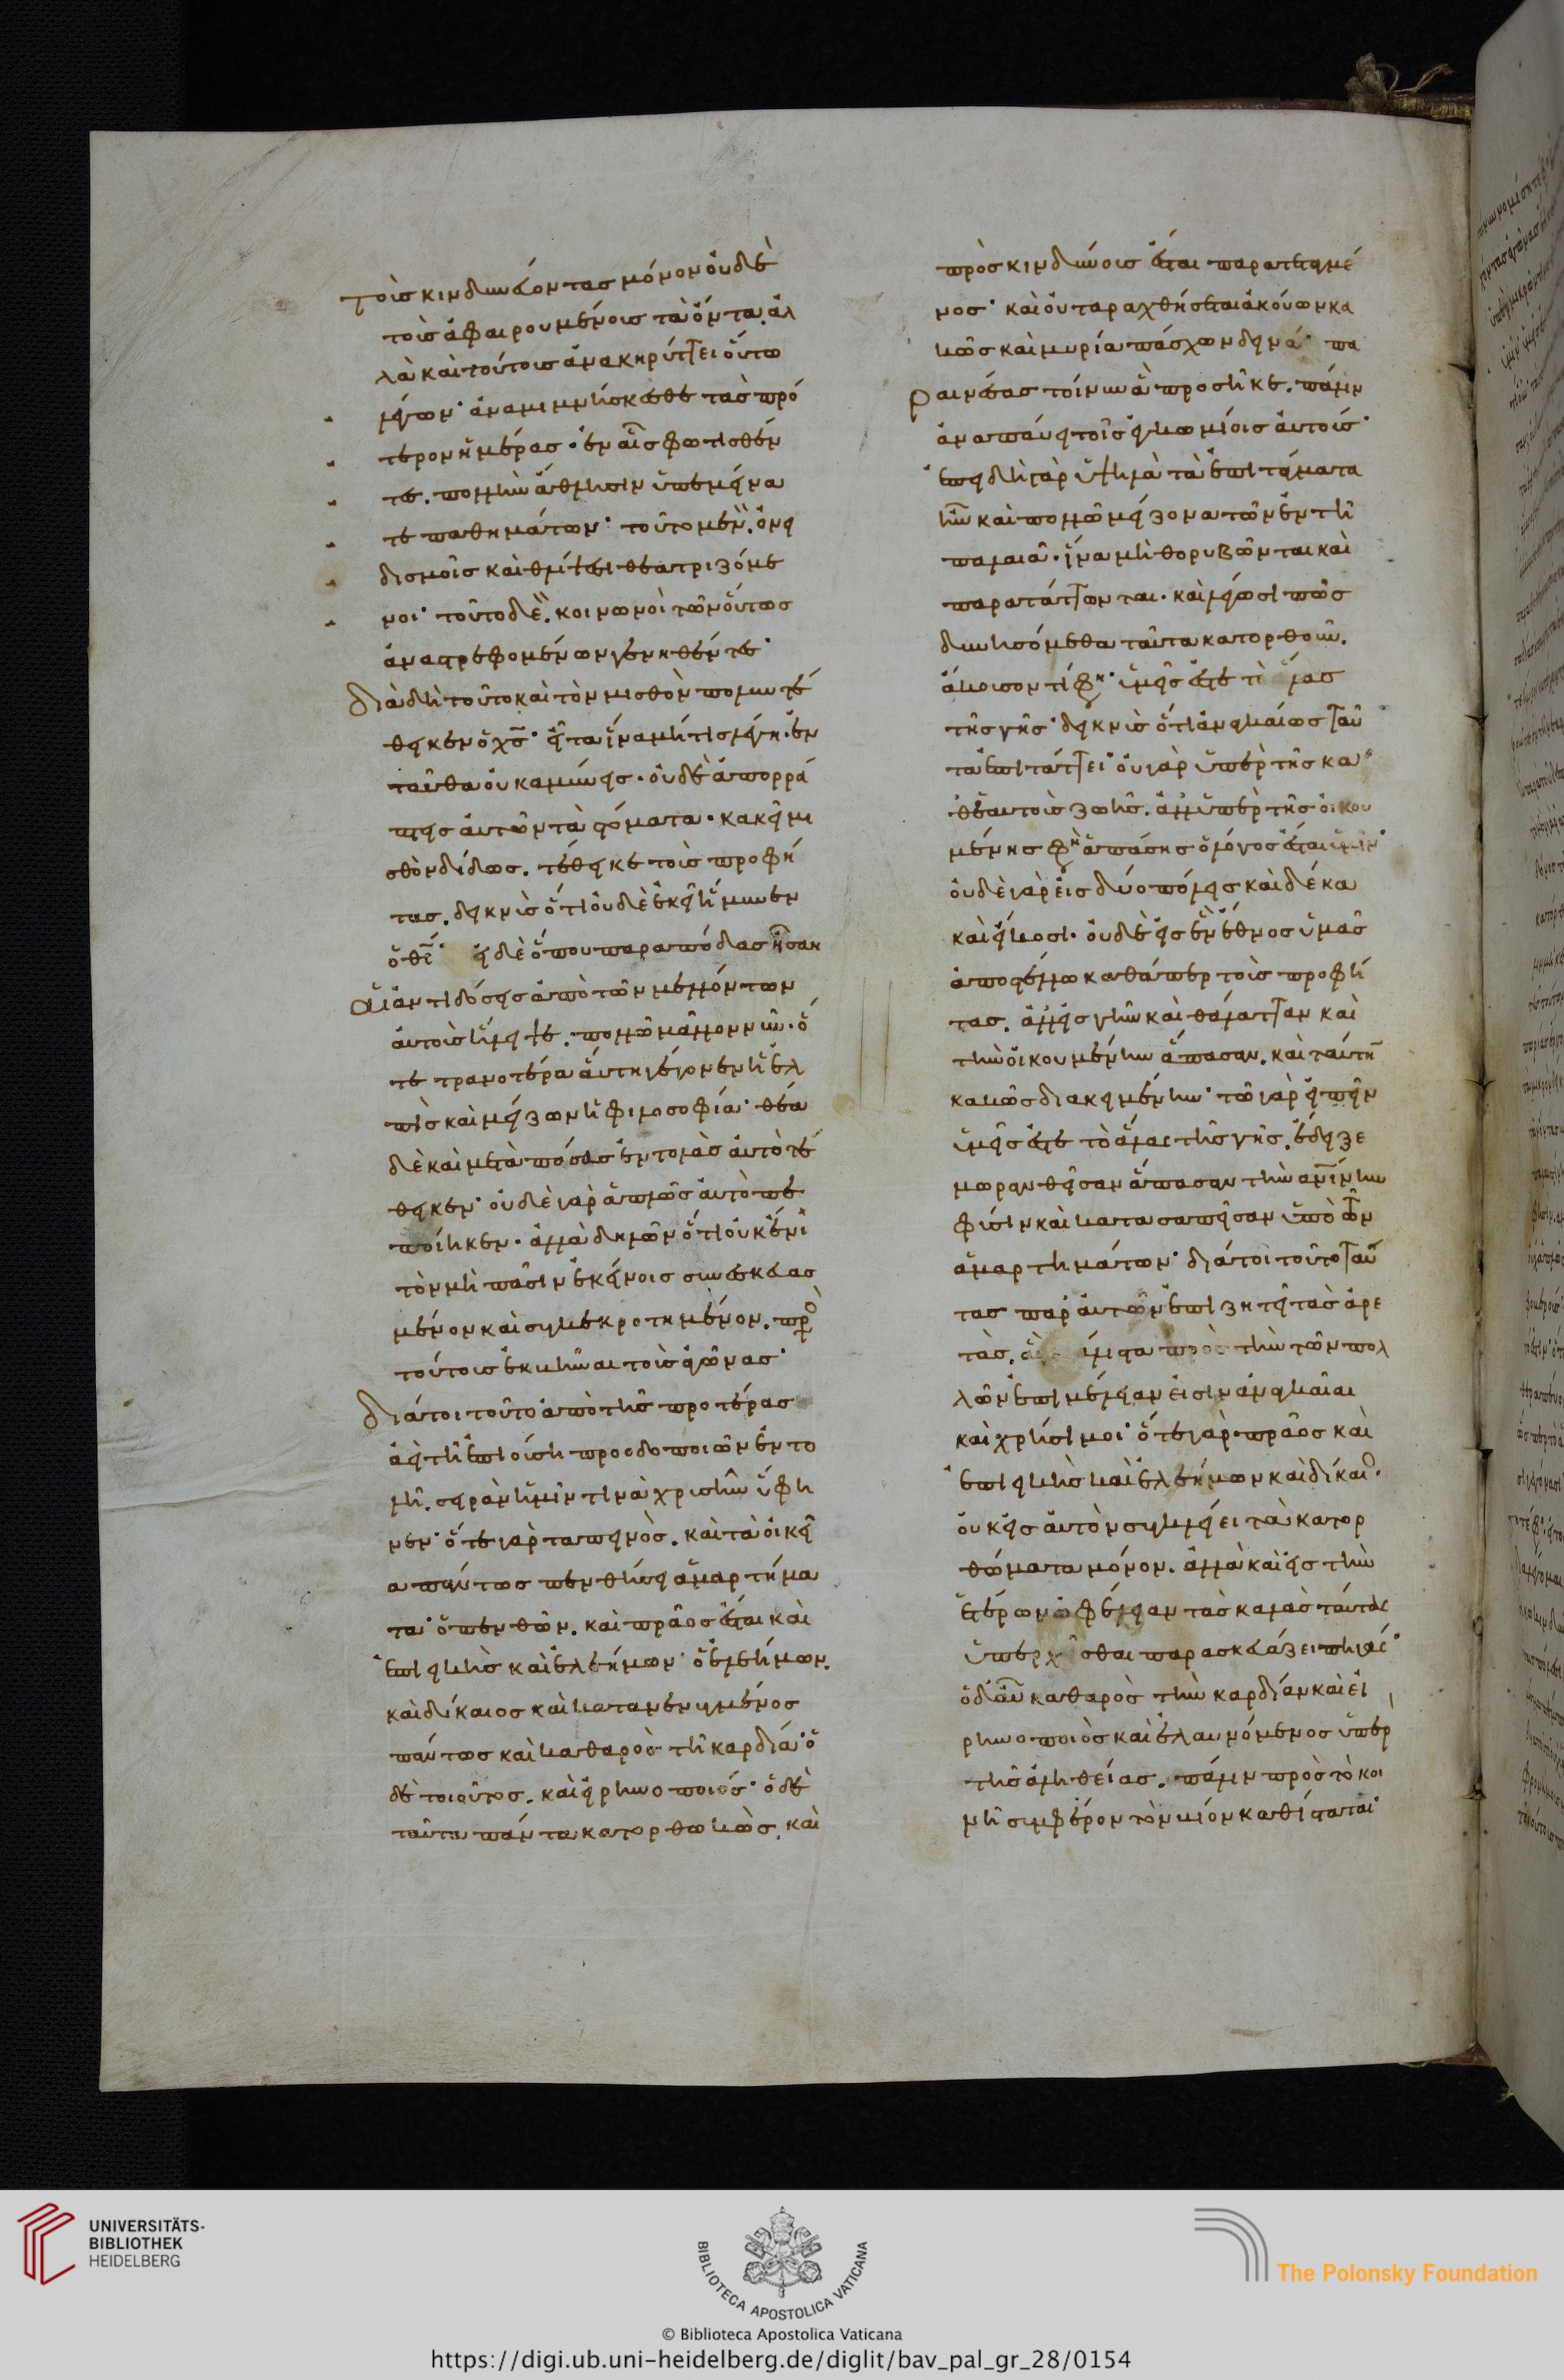 τοὺς κινδυνεύοντας μόνον οὐδὲ
τοῖς ἀφαιρουμένοις τὰ ὄντα, ἀλ
λὰ καὶ τούτοις ἀνακηρύττει οὕτω
λέγων· ἀναμιμνήσκεσθε τὰς πρό
τερον ἡμέρας· ἐν αἷς φωτισθέν
τες, πολλὴν ἄθλησιν ὑπεμείνα
τε παθημάτων· τοῦτο μὲν, ὀνει
δισμοῖς καὶ θλίψεσι θεατριζόμε
νοι· τοῦτο δὲ, κοινωνοὶ τῶν οὕτως
ἀναστρεφομένων γενηθέντες·
Διὰ δὴ τοῦτο καὶ τὸν μισθὸν πολὺν τέ
θεικεν ὁ χς· εἶτα ἵνα μή τις λέγη, ἐν
ταῦθα οὐκ ἀμύνεις· οὐδὲ ἀπορρά
πτεις αὐτῶν τὰ στόματα· κἀκεῖ μι
σθὸν δίδως, τέθεικε τοὺς προφή
τας, δεικνὺς ὅτι οὐδὲ ἐκεῖ ἤμυνεν
ὁ θς· εἰ δὲ ὅπου παρὰ πόδας ἦσαν
αἱ ἀντιδόσεις ἀπὸ τῶν μελλόντων
αὐτοὺς ἤλειψε, πολλῶ μᾶλλον νῦν· ὅ
τε τρανοτέρα αὕτη γέγονεν ἡ ἐλ
πὶς καὶ μείζων ἡ φιλοσοφία· θέα
δὲ καὶ μετὰ πόσας ἐντολὰς αὐτὸ τέ
θεικεν· οὐδὲ γὰρ ἁπλῶς αὐτὸ πε
ποίηκεν· ἀλλὰ δηλῶν ὅτι οὐκ ἔνι
τὸν μὴ πᾶσιν ἐκείνοις συνεσκευασ
μένον καὶ συγκεκροτημένον, πρὸ
τούτοις ἐκκλῖναι τοὺς ἀγῶνας·
Διάτοι τοῦτο ἀπὸ τῆς προτέρας
ἀεὶ τῆ ἐπιούση προοδοποιῶν ἐντο
λῆ, σειρὰν ἡμῖν τινὰ χρυσῆν ὕφη
νεν· ὅ τε γὰρ ταπεινὸς, καὶ τὰ οἰκεῖ
α πάντως πενθήσει ἁμαρτήμα
τα· ὁ πενθῶν, καὶ πρᾶος ἔσται καὶ
ἐπιεικὴς καὶ ἐλεήμων· ὁ ἐλεήμων,
καὶ δίκαιος καὶ κατανενυγμένος
πάντως καὶ καθαρὸς τῆ καρδία· ὁ
δὲ τοιοῦτος, καὶ εἰρηνοποιός· ὁ δὲ
ταῦτα πάντα κατορθωκὼς, καὶ
πρὸς κινδύνους ἔσται παρατεταγμέ
νος· καὶ οὐ ταραχθήσεται ἀκούων κα
κῶς καὶ μυρία πάσχων δεινά· πα
ραινέσας τοίνυν ἃ προσῆκε, πάλιν
ἀναπαύει τοῖς ἐγκωμίοις αὐτούς·
ἐπειδὴ γὰρ ὑψηλὰ τὰ ἐπιτάγματα
ἦν καὶ πολλῶ μείζονα τῶν ἐν τῆ
παλαιᾶ· ἵνα μὴ θορυβῶνται καὶ
παρατάττωνται· καὶ λέγωσι πῶς
δυνησόμεθα ταῦτα κατορθοῦν,
ἄκουσον τί φη· ὑμεῖς ἐστε τὸ ἅλας
τῆς γῆς· δεικνὺς ὅτι ἀναγκαίως ταῦ
τα ἐπιτάττει· οὐ γὰρ ὑπὲρ τῆς κα
θ' ἑαυτοὺς ζωῆς, ἀλλ' ὑπὲρ τῆς οἰκου
μένης φη ἁπάσης ὁ λόγος ἔσται ὑμῖν·
οὐδὲ γὰρ εἰς δύο πόλεις καὶ δέκα
καὶ εἴκοσι· οὐδὲ εἰς ἓν ἔθνος ὑμᾶς
ἀποστέλλω καθάπερ τοὺς προφή
τας, ἀλλ' εἰς γῆν καὶ θάλατταν καὶ
τὴν οἰκουμένην ἅπασαν, καὶ ταύτην
κακῶς διακειμένην· τῶ γὰρ εἰπεῖν
ὑμεῖς ἐστε τὸ ἅλας τῆς γῆς, ἔδειξε
μωρανθεῖσαν ἅπασαν τὴν ανινην
φύσιν καὶ κατασαπεῖσαν ὑπὸ τῶν
ἁμαρτημάτων· διάτοι τοῦτο ταύ
τας παρ' αὐτῶν ἐπιζητεῖ τὰς ἀρε
τὰς, αἳ μάλιστα πρὸς τὴν τῶν πολ
λῶν ἐπιμέλειαν εἰσὶν ἀναγκαῖαι
καὶ χρήσιμοι· ὅ τε γὰρ πρᾶος καὶ
ἐπιεικὴς καὶ ἐλεήμων καὶ δίκαιο·
οὐκ εἰς αὐτὸν συγκλείει τὰ κατορ
θώματα μόνον, ἀλλὰ καὶ εἰς τὴν
ἑτέρων ὠφέλειαν τὰς καλὰς ταύτας
ὑπερχεῖσθαι παρασκευάζει πηγάς·
ὁ δ' αὖ καθαρὸς τὴν καρδίαν καὶ εἰ
ρηνοποιὸς καὶ ἐλαυνόμενος ὑπὲρ
τῆς ἀληθείας, πάλιν πρὸς τὸ κοι
νῆ συμφέρον τὸν βίον καθίσταται·
UNIVERSITÄTS-
BIBLIOTHEK
HEIDELBERG
BIBLIOTECA APOSTOLICA VATICANA
The Polonsky Foundation
© Biblioteca Apostolica Vaticana
https://digi.ub.uni-heidelberg.de/diglit/bav_pal_gr_28/0154